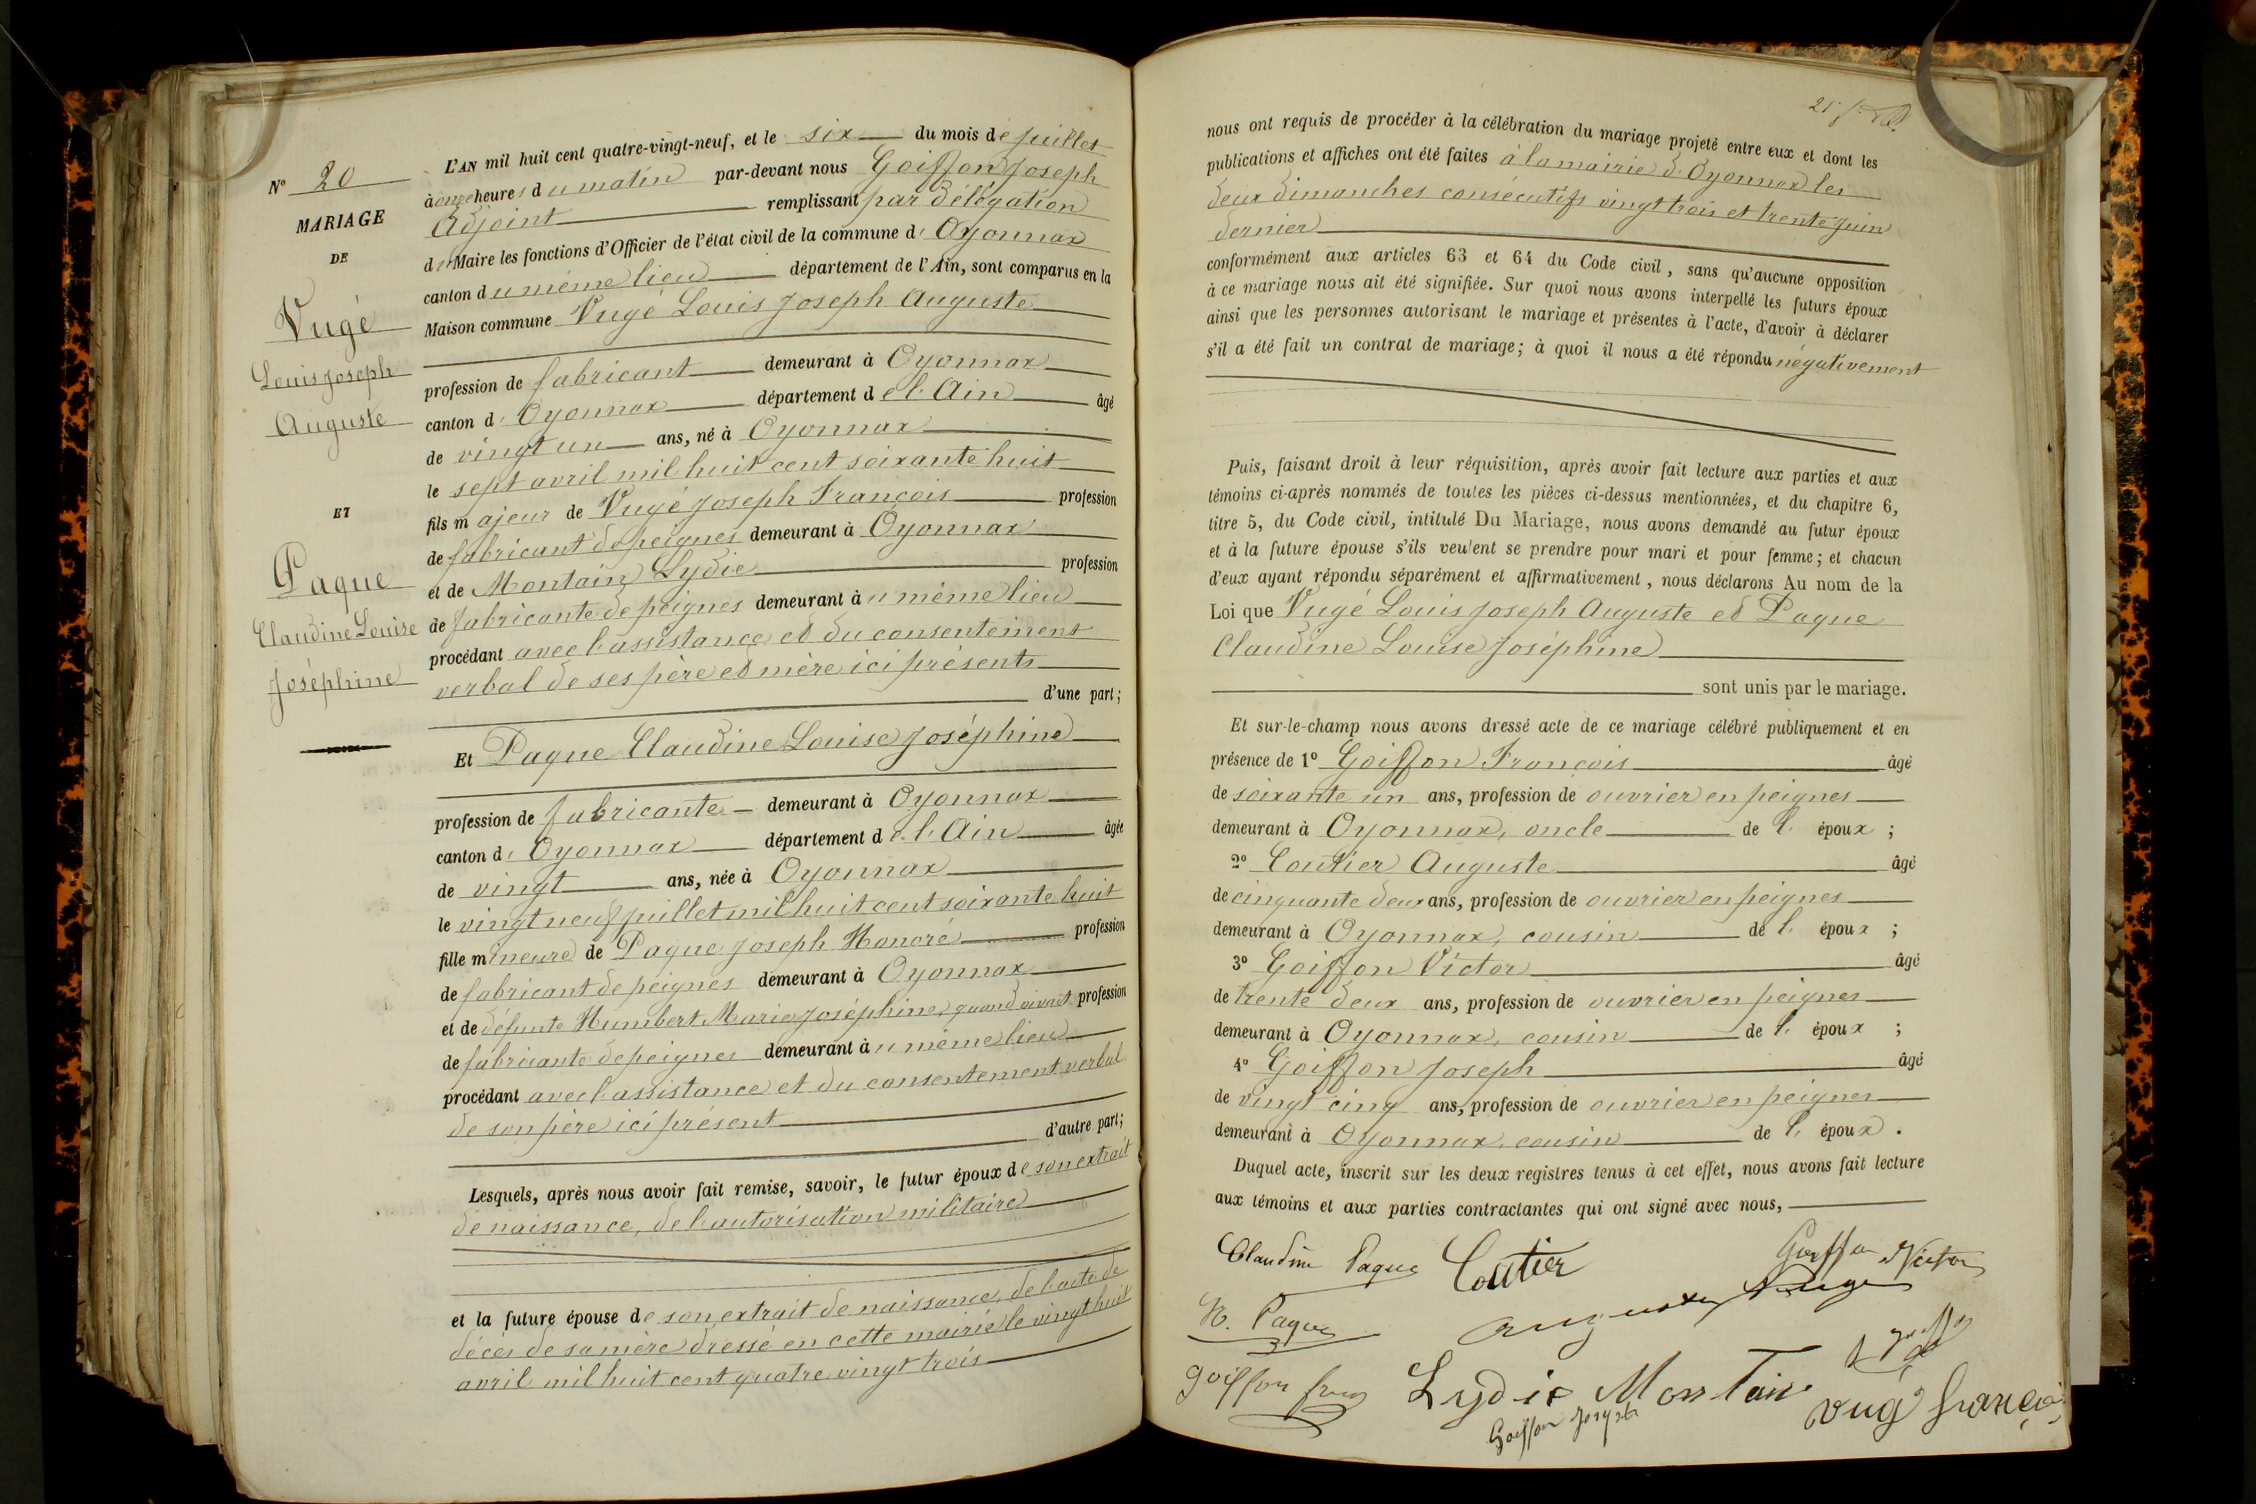 N° 20
MARIAGE
DE
Vugé
Louis Joseph
Auguste
ET
Paque
Claudine Louise
Joséphine
L'AN mil huit cent quatre-vingt-neuf, et le six du mois de juillet
à onze heures du matin par-devant nous Goiffon Joseph
Adjoint remplissant par délégation
du Maire les fonctions d'Officier de l'état civil de la commune d'Oyonnax
canton du même lieu département de l'Ain, sont comparus en la
Maison commune Vugé Louis Joseph Auguste
profession de fabricant demeurant à Oyonnax
canton d'Oyonnax département de l'Ain âgé
de vingt un ans, né à Oyonnax
le sept avril mil huit cent soixante huit
fils majeur de Vugé Joseph François profession
de fabricant de peignes demeurant à Oyonnax
et de Montain Lydie profession
de fabricante de peignes demeurant au même lieu
procédant avec l'assistance et du consentement
verbal de ses père et mère ici présents
d'une part;
Et Paque Claudine Louise Joséphine
profession de fabricante demeurant à Oyonnax
canton d'Oyonnax département de l'Ain âgée
de vingt ans, née à Oyonnax
le vingt neuf juillet mil huit cent soixante huit
fille mineure de Paque Joseph Honoré profession
de fabricant de peignes demeurant à Oyonnax
et de défunte Humbert Marie Joséphine, quand vivait profession
de fabricante de peignes demeurant au même lieu
procédant avec l'assistance et du consentement verbal
de son père ici présent
d'autre part;
Lesquels, après nous avoir fait remise, savoir, le futur époux de son extrait
de naissance, de l'autorisation militaire
et la future épouse de son extrait de naissance, de l'acte de
décès de sa mère dressé en cette mairie le vingt huit
avril mil huit cent quatre vingt trois
nous ont requis de procéder à la célébration du mariage projeté entre eux et dont les
publications et affiches ont été faites à la mairie d'Oyonnax les
deux dimanches consécutifs vingt trois et trente juin
dernier
conformément aux articles 63 et 64 du Code civil, sans qu'aucune opposition
à ce mariage nous ait été signifiée. Sur quoi nous avons interpellé les futurs époux
ainsi que les personnes autorisant le mariage et présentes à l'acte, d'avoir à déclarer
s'il a été fait un contrat de mariage; à quoi il nous a été répondu négativement
Puis, faisant droit à leur réquisition, après avoir fait lecture aux parties et aux
témoins ci-après nommés de toutes les pièces ci-dessus mentionnées, et du chapitre 6,
titre 5, du Code civil, intitulé Du Mariage, nous avons demandé au futur époux
et à la future épouse s'ils veulent se prendre pour mari et pour femme; et chacun
d'eux ayant répondu séparément et affirmativement, nous déclarons Au nom de la
Loi que Vugé Louis Joseph Auguste et Paque
Claudine Louise Joséphine
sont unis par le mariage.
Et sur-le-champ nous avons dressé acte de ce mariage célébré publiquement et en
présence de 1° Goiffon François âgé
de soixante un ans, profession de ouvrier en peignes
demeurant à Oyonnax, oncle de l'époux;
2° Coutier Auguste âgé
de cinquante deux ans, profession de ouvrier en peignes
demeurant à Oyonnax, cousin de l'époux;
3° Goiffon Victor âgé
de trente deux ans, profession de ouvrier en peignes
demeurant à Oyonnax, cousin de l'époux;
4° Goiffon Joseph âgé
de vingt cinq ans, profession de ouvrier en peignes
demeurant à Oyonnax, cousin de l'époux.
Duquel acte, inscrit sur les deux registres tenus à cet effet, nous avons fait lecture
aux témoins et aux parties contractantes qui ont signé avec nous,
Claudine Paque Coutier Goiffon Victor
H. Paque Auguste Vugé
Goiffon Lydie Montain Vugé françois
Goiffon Joseph